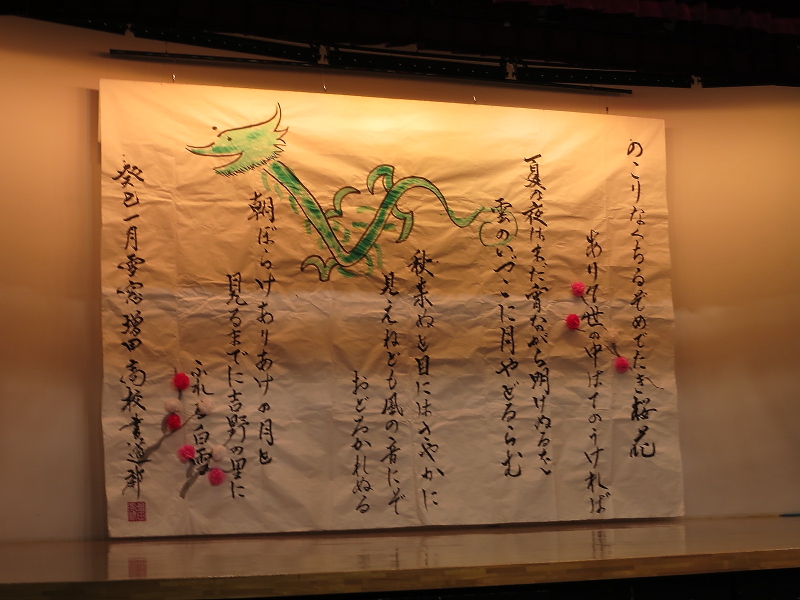 のこりなくちるぞめでたき桜花
ありて世の中はてのうければ
夏の夜はまだ宵ながら明けぬるを
雲のいづこに月やどるらむ
秋来ぬと目にはさやかに
見えねども風の音にぞ
おどろかれぬる
朝ぼらけありあけの月と
見るまでに吉野の里に
ふれる白雪
癸巳一月雪窓増田高校書道部